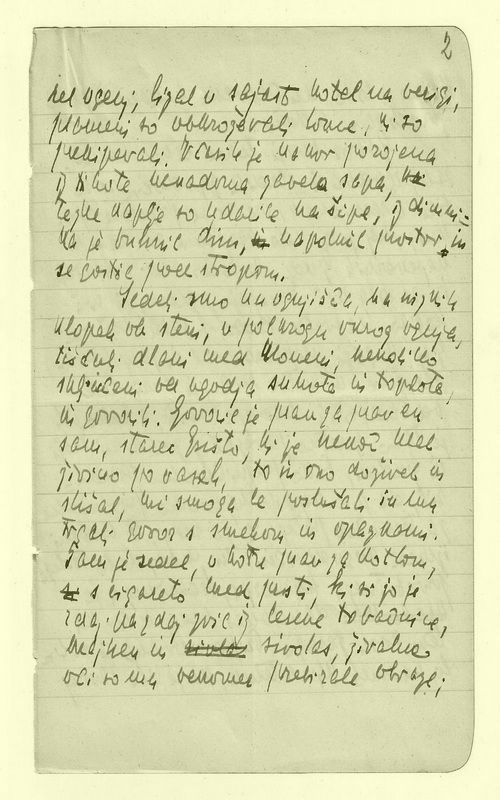 2
nel ogenj, lizal v sajast kotel na verigi,
plameni so obkroževali lonce, ki so
prekipevali. Včasih je kakor porojena
iz tihote nenadoma zavela sapa,
težke kaplje so udarile na šipe, iz dimni-
ka je buhnil dim, napolnil prostor in
se gostil pod stropom.
Sedeli smo na ognjišču, na nizkih
klopeh ob steni, v polkrogu okrog ognja,
tiščali dlani med koleni, nekoliko
sključeni od ugodja suhote in toplote,
in govorili. Govoril je pravzaprav en
sam, starec, ki je nekoč
živino po vaseh, to in ono doživel in
slišal, mi smo ga le poslušali in mu
trgali govor s smehom in opazkami.
Tam je sedel, v kotu prav za kotlom,
s cigareto med prsti, ki si jo je
zdaj na zdaj zvil iz lesene tobačnice,
majhen in sivolas, živahne
oči so mu venomer prebirale obraze;